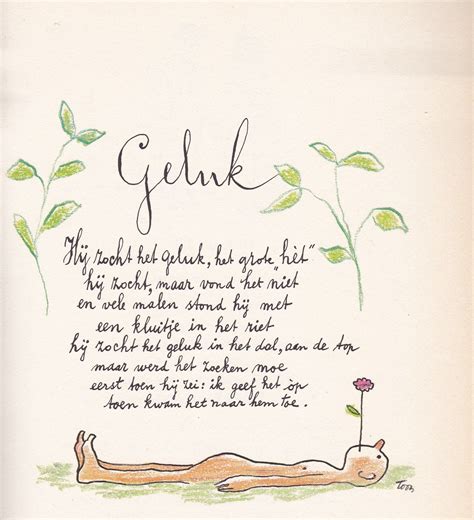 Geluk
Hij zocht het geluk, het grote "hèt"
hij zocht, maar vond het niet
en vele malen stond hij met
een kluitje in het riet
hij zocht het geluk in het dal, aan de top
maar werd het zoeken moe
eerst toen hij zei: ik geef het òp
toen kwam het naar hem toe.
Toon